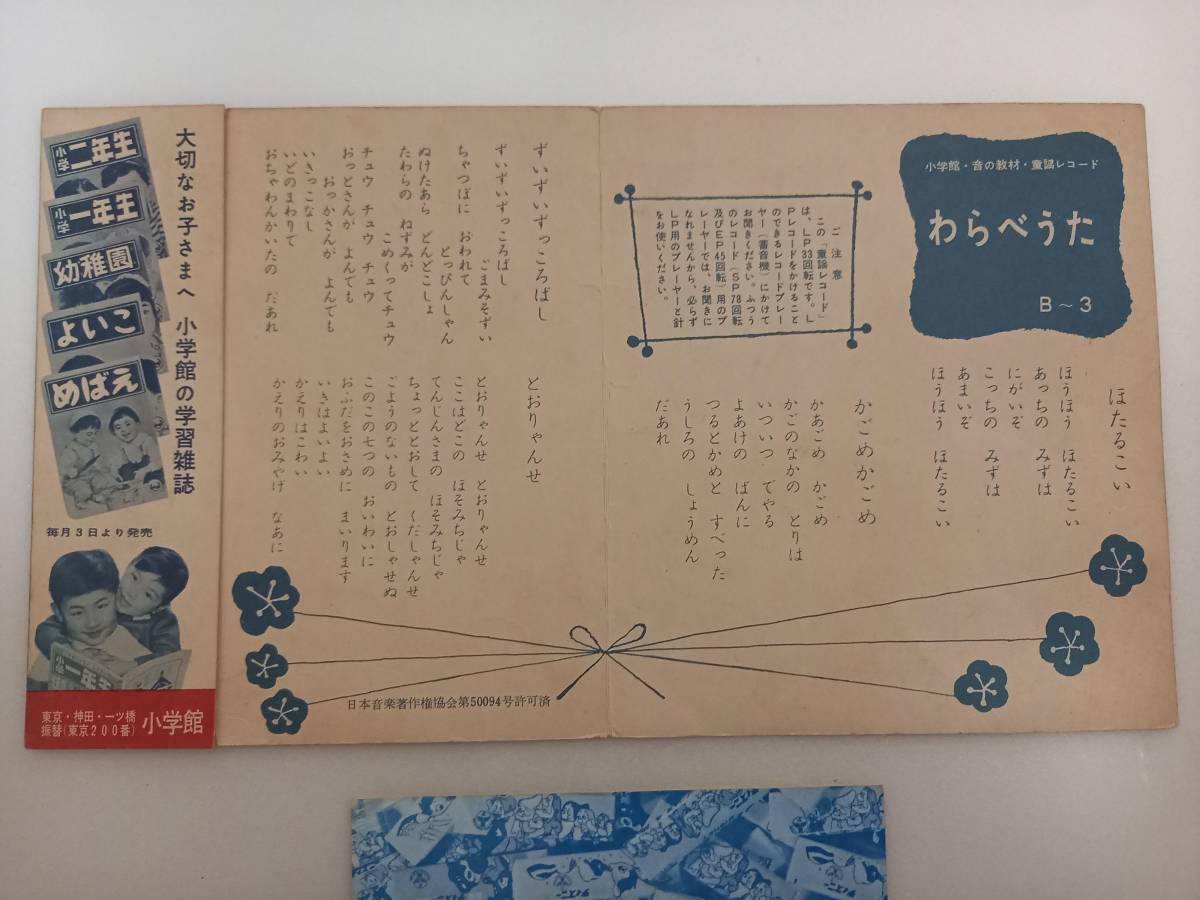 小学館・音の教材・童謡レコード
わらべうた
B～3
ほたるこい
ほうほう　ほたるこい
あっちの　みずは
にがいぞ
こっちの　みずは
あまいぞ
ほうほう　ほたるこい
ご注意
この「童謡レコード」
は、LP33回転です。L
Pレコードをかけること
のできるレコードプレー
ヤー（蓄音機）にかけて
お聞きください。ふつう
のレコード（SP78回転
及びEP45回転）用のプ
レーヤーでは、お聞きに
なれませんから、必らず
LP用のプレーヤーと針
をお使いください。
かごめかごめ
かあごめ　かごめ
かごのなかの　とりは
いついつ　でやる
よあけの　ばんに
つるとかめと　すべった
うしろの　しょうめん
だあれ
ずいずいずっころばし
ずいずいずっころばし
ごまみそずい
ちゃつぼに　おわれて
とっぴんしゃん
ぬけたあら　どんどこしょ
たわらの　ねずみが
こめくってチュウ
チュウ　チュウ　チュウ
おっとさんが　よんでも
おっかさんが　よんでも
いきっこなし
いどのまわりで
おちゃわんかいたの　だあれ
とおりゃんせ
とおりゃんせ　とおりゃんせ
ここはどこの　ほそみちじゃ
てんじんさまの　ほそみちじゃ
ちょっととおして　くだしゃんせ
ごようのないもの　とおしゃせぬ
このこの七つの　おいわいに
おふだをおさめに　まいります
いきはよいよい
かえりはこわい
かえりのおみやげ　なあに
日本音楽著作権協会第50094号許可済
大切なお子さまへ　小学館の学習雑誌
小学二年生
小学一年生
幼稚園
よいこ
めばえ
毎月3日より発売
小学一年生
東京・神田・一ツ橋
振替(東京200番)
小学館